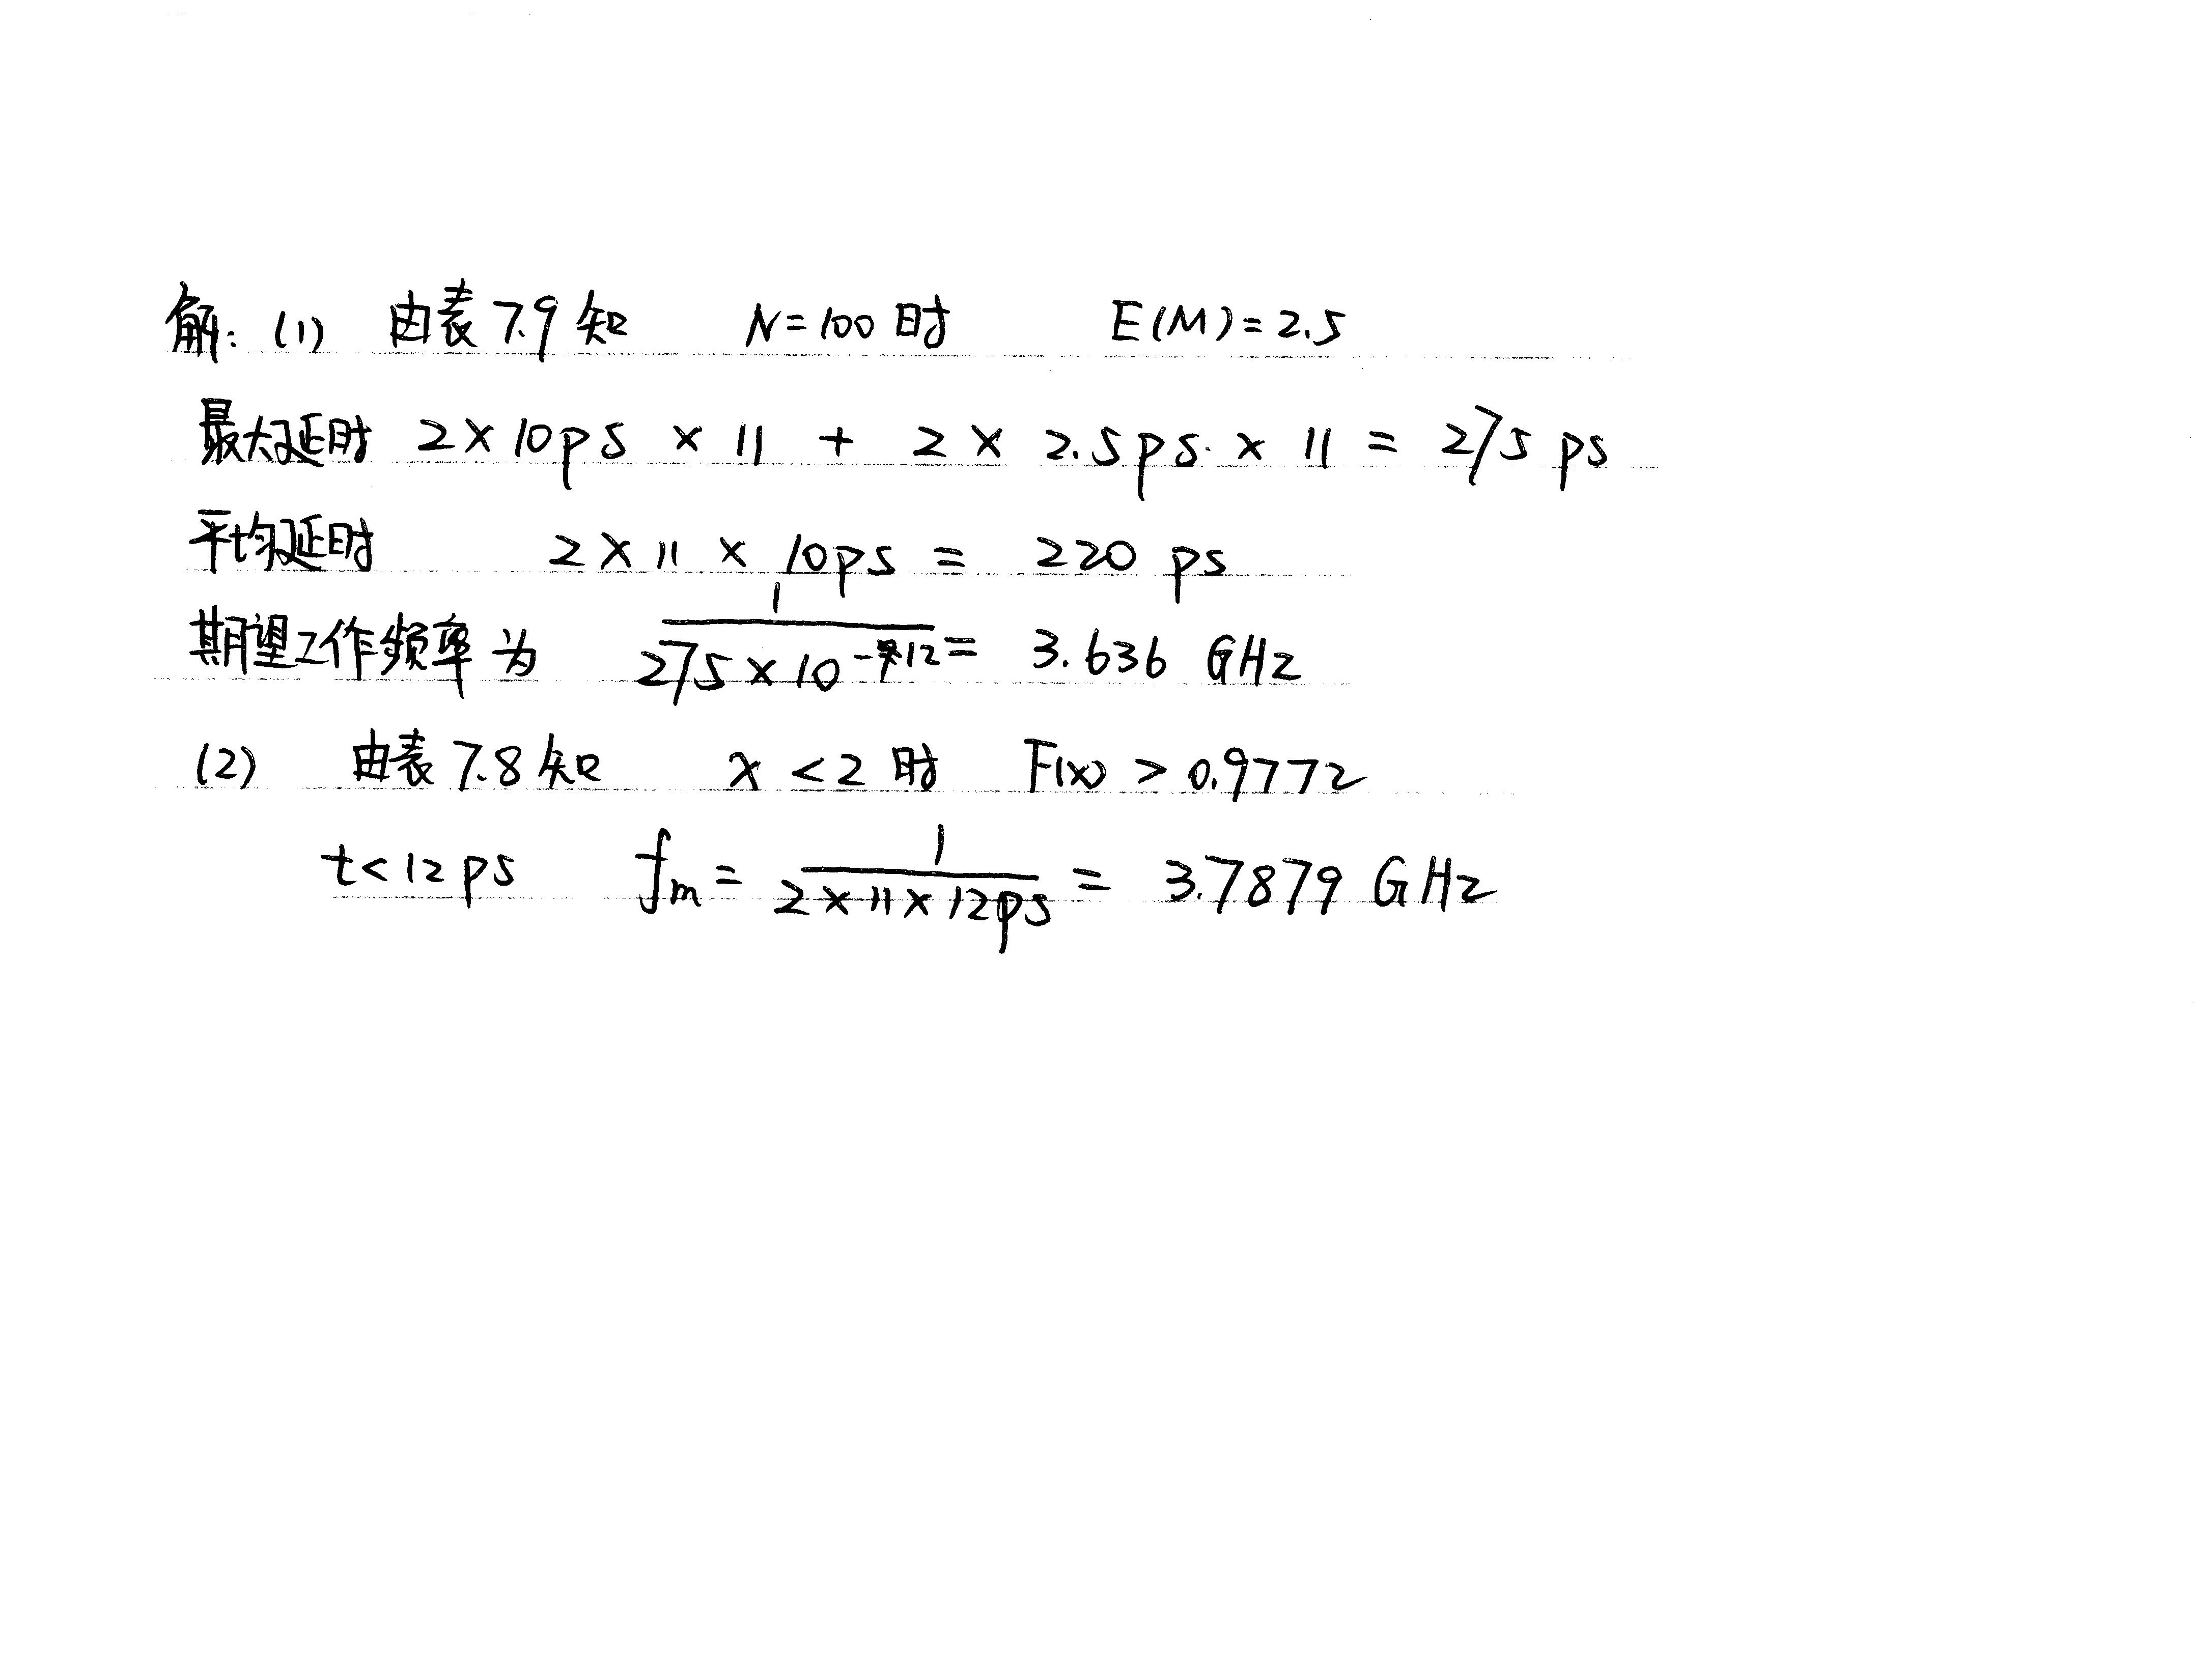 解：(1) 由表7.9知 N=100时 E(M)=2.5
最大延时 2×10ps × 11 + 2 × 2.5ps. × 11 = 275 ps
平均延时 2×11 × 10ps = 220 ps
期望工作频率为 1/(275×10^-12) = 3.636 GHz
(2) 由表7.8知 x<2时 F(x) > 0.9772
t<12ps fm = 1/(2×11×12ps) = 3.7879 GHz